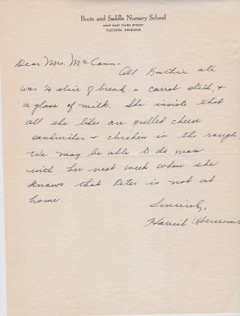 Boots and Saddle Nursery School
TUCSON, ARIZONA
Dear Mrs. McCann-
All Ruthie ate
was ½ slice of bread a carrot stick, &
a glass of milk. She insists that
all she likes are grilled cheese
sandwiches & chicken in the rough.
We may be able to do more
with her next week when she
knows that Peter is not at
home.
Sincerely,
Harriet